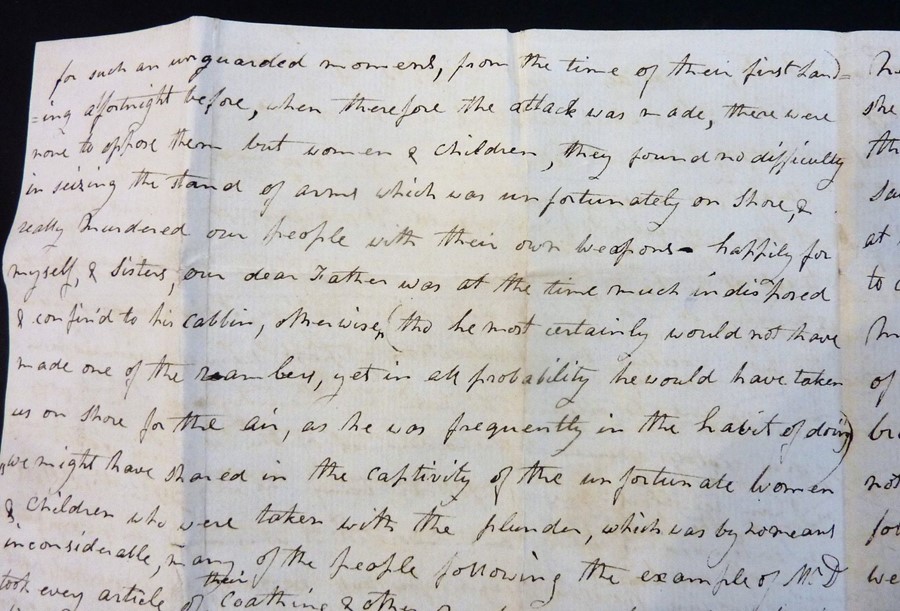 for such an unguarded moment, from the time of their first land=
=ing a fortnight before, when therefore the attack was made, there were
none to oppose them but women & children, they found no difficulty
in seizing the stand of arms which was unfortunately on shore, &
really Murdered our people with their own weapons - happily for
myself, & Sisters, our dear Father was at the time much indisposed
& confin'd to his cabbin, otherwise, (tho he most certainly would not have
made one of the ramblers, yet in all probability he would have taken
us on shore for the air, as he was frequently in the habit of doing)
we might have shared in the captivity of the unfortunate women
& children who were taken with the plunder, which was by no means
inconsiderable, many of the people following the example of Mr D
took every article of their coathing & other
he
she
th
sa
at
to
m
of
br
not
for
we